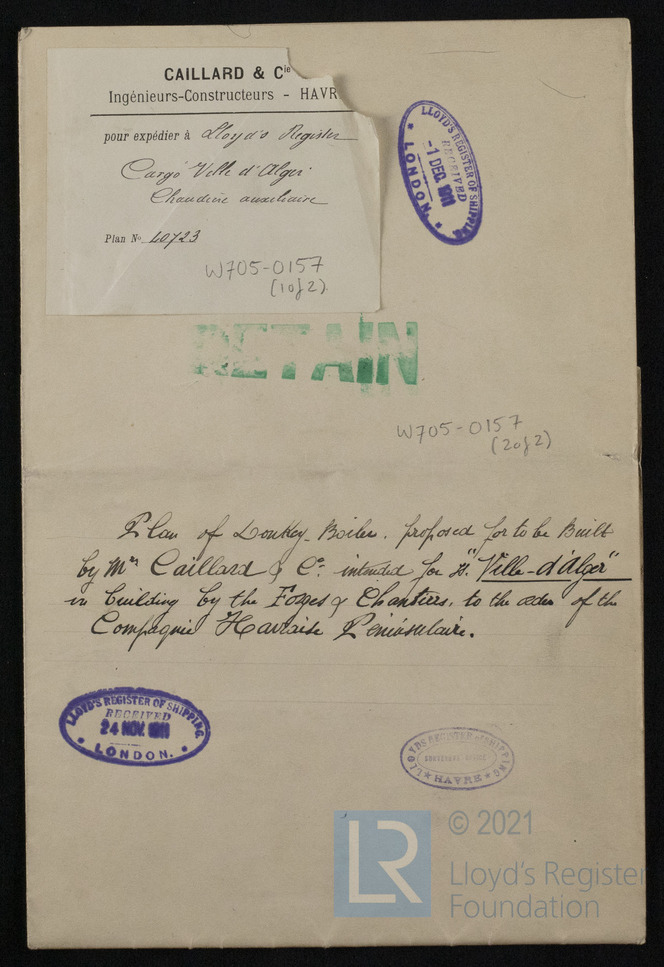 CAILLARD & Cie
Ingénieurs-Constructeurs - HAVR
pour expédier à Lloyd's Register
Cargo Ville d'Alger
Chaudière auxiliaire
Plan No 10723
W705-0157
(1 of 2)
LLOYD'S REGISTER OF SHIPPING.
RECEIVED
-1 DEC. 1911
LONDON.
RETAIN
W705-0157
(2 of 2)
Plan of Donkey-Boiler, proposed for to be Built
by Mrs Caillard & Co. intended for "Ville-d'Alger"
in building by the Forges & Chantiers, to the order of the
Compagnie Havraise Péninsulaire.
LLOYD'S REGISTER OF SHIPPING.
RECEIVED
24 NOV. 1911
LONDON.
LLOYDS REGISTER OF SHIPPING
SURVEYORS OFFICE
HAVRE
LR
© 2021
Lloyd's Register
Foundation